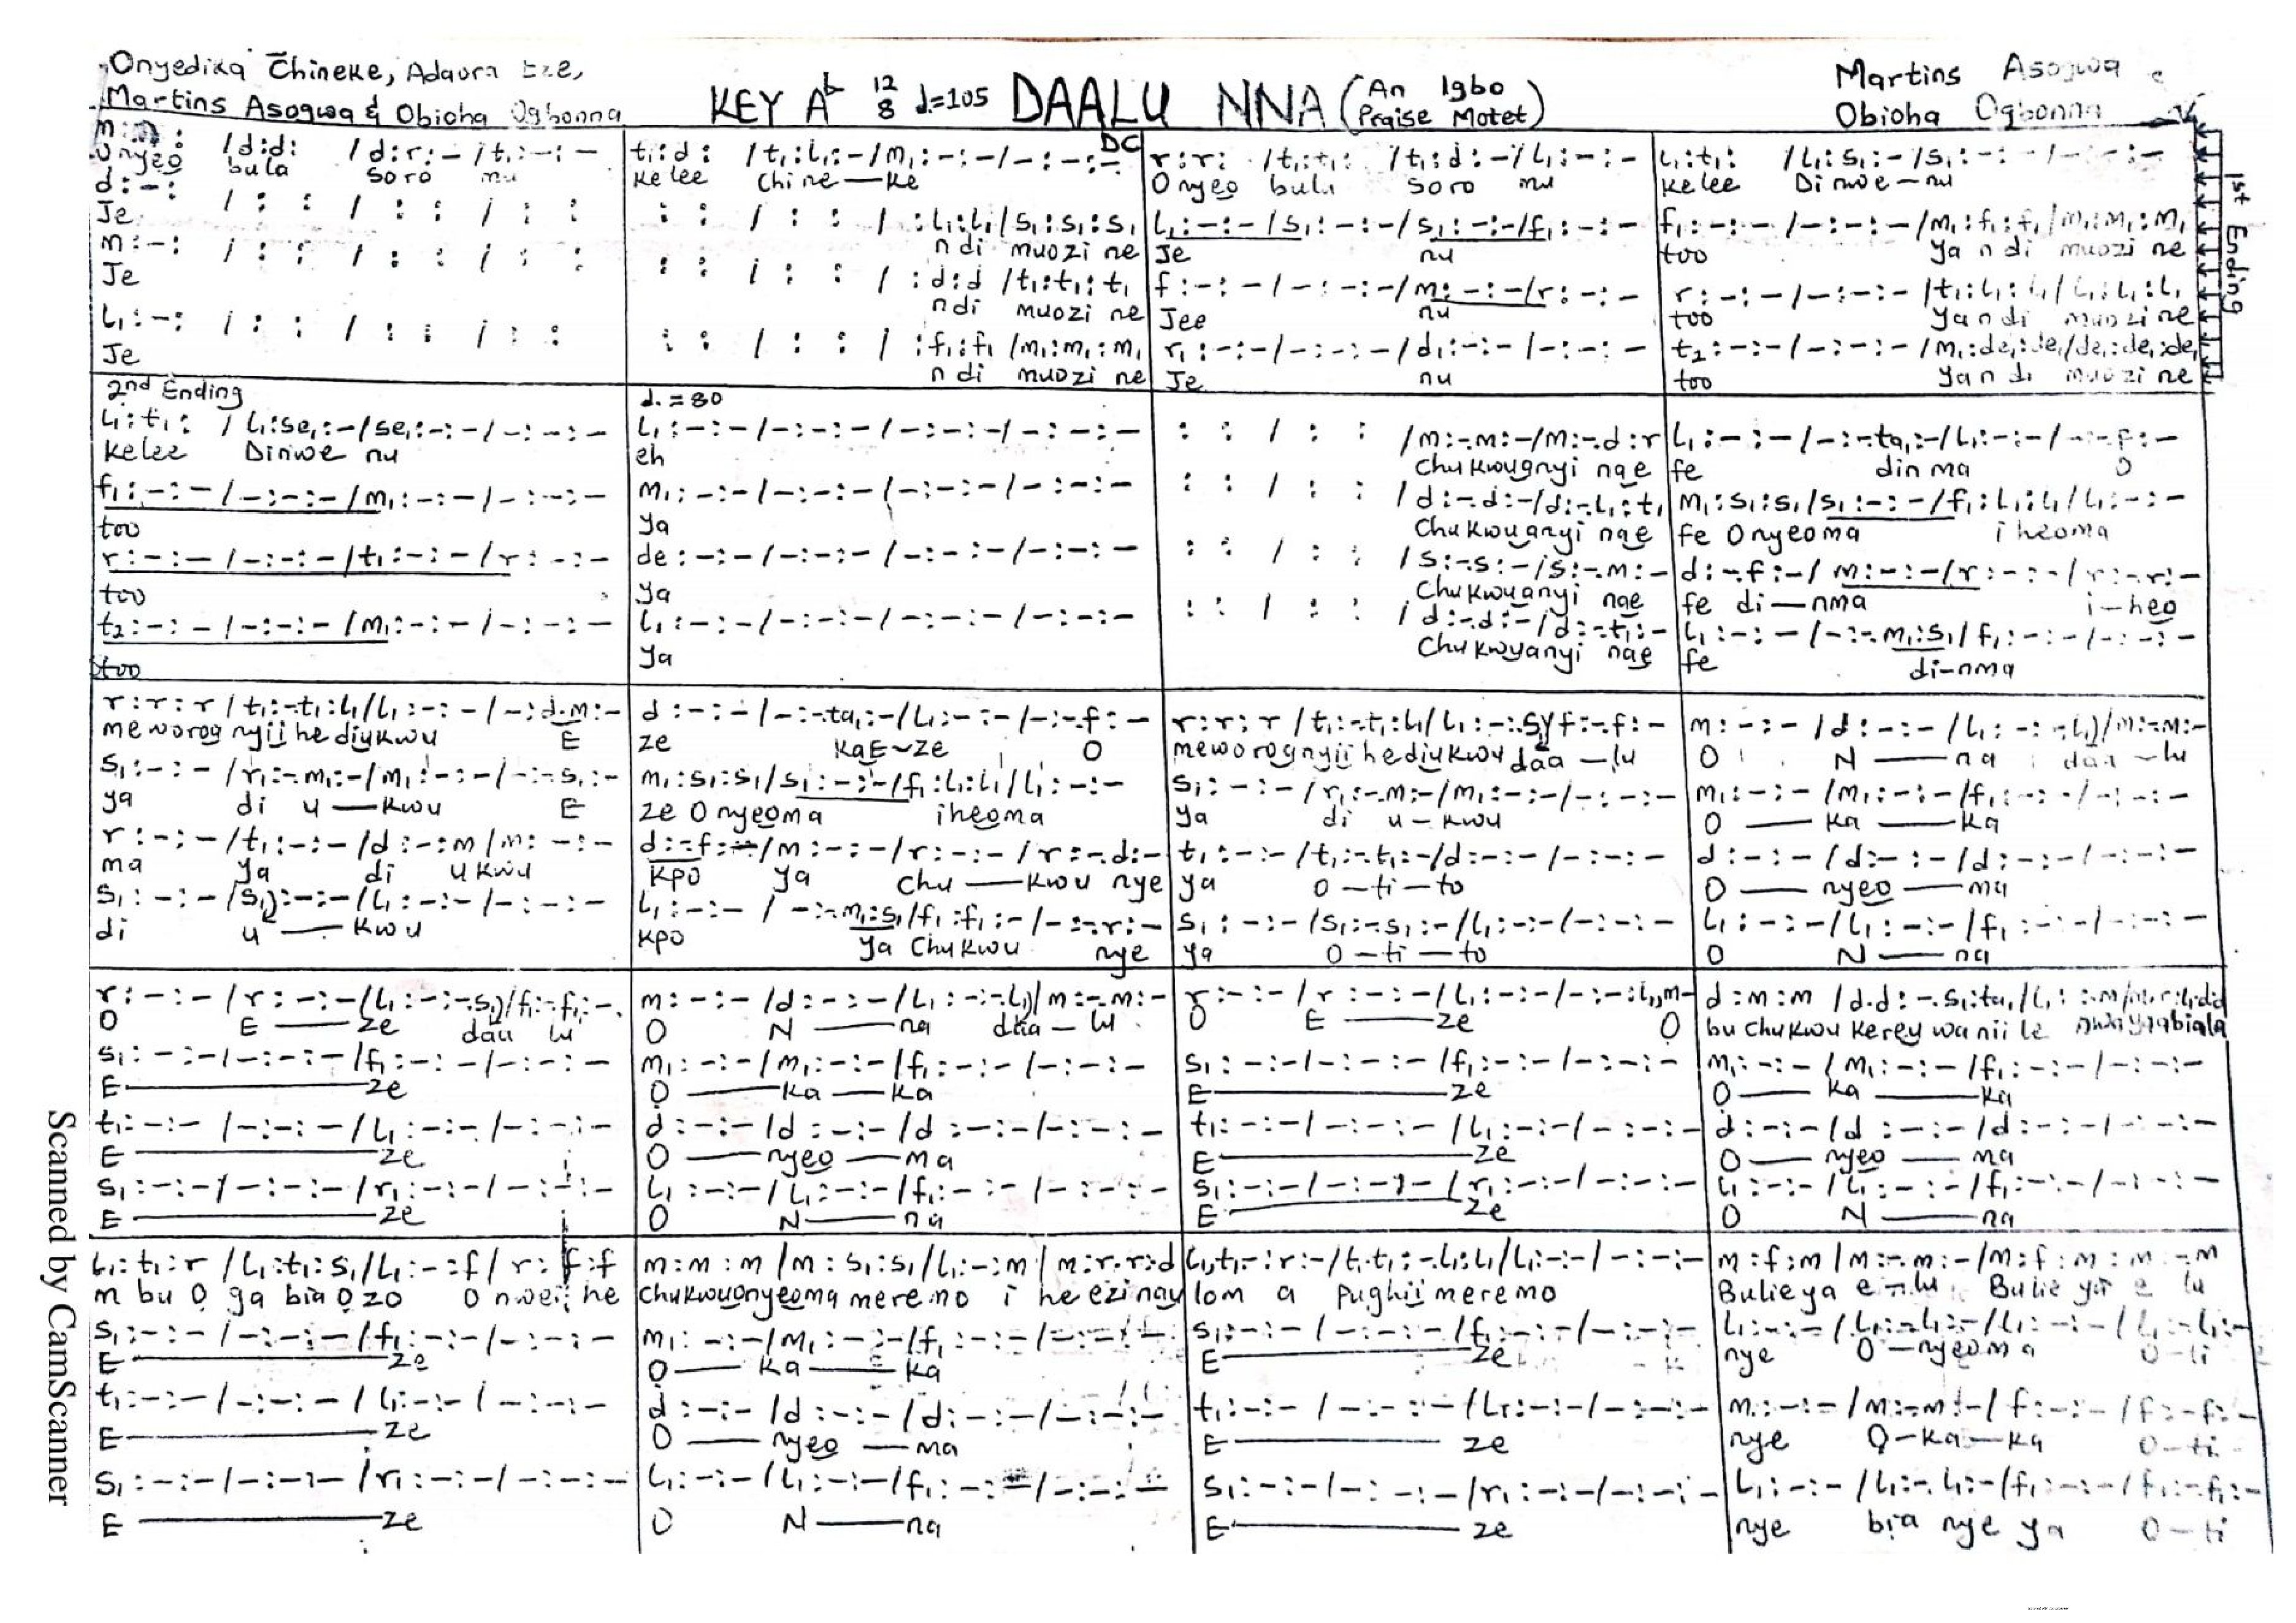 Onyedika Chineke, Adaora Eze,
Martins Asogwa & Obioha Ogbonna
KEY Ab 12/8 d.=105 DAALU NNA (An Igbo Praise Motet)
Martins Asogwa
Obioha Ogbonna
DC
1st Ending
/d:d: /d:r:-/t₁:-:-
Onyeo bula soro nu
t₁:d: /t₁:l₁:-/m₁:-:-/-:-:-
Ke lee Chi ne—ke
r:r: /t₁:t₁: /t₁:d:-/l₁:-:-
Onyeo bula soro nu
l₁:t₁: /l₁:s₁:-/s₁:-:-/-:-:-
Kelee Dinwe-nu
d:-: / : : / : : / : :
Je
: : / : : / :l₁:l₁/s₁:s₁:s₁
ndi muozi ne
l₁:-:-/s₁:-:-/s₁:-:-/f₁:-:-
Je nu
f₁:-:-/-:-:-/m₁:f₁:f₁/m₁:m₁:m₁
too Ya ndi muozi ne
m:-: / : : / : : / : :
Je
: : / : : / :d:d/t₁:t₁:t₁
ndi muozi ne
f:-:-/-:-:-/m:-:-/r:-:-
Jee nu
r:-:-/-:-:-/t₁:l₁:l₁/l₁:l₁:l₁
too Yandi muozi ne
l₁:-: / : : / : : / : :
Je
: : / : : / :f₁:f₁/m₁:m₁:m₁
ndi muozi ne
r₁:-:-/-:-:-/d₁:-:-/-:-:-
Je nu
t₂:-:-/-:-:-/m₁:de₁:de₁/de₁:de₁:de₁
too Yandi muozi ne
2nd Ending
l₁:t₁: /l₁:se₁:-/se₁:-:-/-:-:-
Kelee Dinwe nu
d.=80
l₁:-:-/-:-:-/-:-:-/-:-:-
eh
: : / : : /m:-.m:-/m:-.d:r
Chukwuanyi nae
l₁:-:-/-:-.ta₁:-/l₁:-:-/-:-.f:-
fe dinma O
f₁:-:-/-:-:-/m₁:-:-/-:-:-
too
m₁:-:-/-:-:-/-:-:-/-:-:-
Ya
: : / : : /d:-.d:-/d:-.l₁:t₁
Chukwuanyi nae
m₁:s₁:s₁/s₁:-:-/f₁:l₁:l₁/l₁:-:-
fe Onyeoma iheoma
r:-:-/-:-:-/t₁:-:-/r:-:-
too
de:-:-/-:-:-/-:-:-/-:-:-
Ya
: : / : : /s:-.s:-/s:-.m:-
Chukwuanyi nae
d:-.f:-/m:-:-/r:-:-/r:-.r:-
fe di—nma i-heo
t₂:-:-/-:-:-/m₁:-:-/-:-:-
too
l₁:-:-/-:-:-/-:-:-/-:-:-
Ya
: : / : : /d:-.d:-/d:-.t₁:-
Chukwuanyi nae
l₁:-:-/-:-.m₁:s₁/f₁:-:-/-:-:-
fe di-nma
r:r:r/t₁:-.t₁:l₁/l₁:-:-/-:d.m:-
meworoanyiihediukwu E
d:-:-/-:-.ta₁:-/l₁:-:-/-:-.f:-
ze KaE~ze O
r:r:r/t₁:-.t₁:l₁/l₁:-:s₁/f:-.f:-
meworoanyiihediukwu daa-lu
m:-:-/d:-:-/l₁:-:-l₁/m:-.m:-
O N——na daa-lu
s₁:-:-/r₁:-.m₁:-/m₁:-:-/-:-.s₁:-
ya di u—kwu E
m₁:s₁:s₁/s₁:-:-/f₁:l₁:l₁/l₁:-:-
ze Onyeoma iheoma
s₁:-:-/r₁:-.m₁:-/m₁:-:-/-:-:-
Ya di u-kwu
m₁:-:-/m₁:-:-/f₁:-:-/-:-:-
O——ka——ka
r:-:-/t₁:-:-/d:-:m/m:-:-
ma ya di ukwu
d:-.f:-/m:-:-/r:-:-/r:-.d:-
kpo ya Chu—kwu nye
t₁:-:-/t₁:-.t₁:-/d:-:-/-:-:-
ya O-ti-to
d:-:-/d:-:-/d:-:-/-:-:-
O——nyeo——ma
s₁:-:-/s₁:-:-/l₁:-:-/-:-:-
di u——kwu
l₁:-:-/-:-.m₁:s₁/f₁:f₁:-/-:-.r:-
kpo Ya Chukwu nye
s₁:-:-/s₁:-.s₁:-/l₁:-:-/-:-:-
ya O-ti-to
l₁:-:-/l₁:-:-/f₁:-:-/-:-:-
O N——na
r:-:-/r:-:-/l₁:-:-.s₁/f₁:-.f₁:-.
O E——ze daa lu
m:-:-/d:-:-/l₁:-:-l₁/m:-.m:-
O N——na daa-lu
r:-:-/r:-:-/l₁:-:-/-:-:l₁,m-
O E——ze O
d:m:m/d.d:-.s₁:ta₁/l₁
bu Chukwu Kerey wa nii le
s₁:-:-/-:-:-/f₁:-:-/-:-:-
E————ze
m₁:-:-/m₁:-:-/f₁:-:-/-:-:-
O——ka——ka
s₁:-:-/-:-:-/f₁:-:-/-:-:-
E————ze
m₁:-:-/m₁:-:-/f₁:-:-/-:-:-
O——ka——ka
t₁:-:-/-:-:-/l₁:-:-/-:-:-
E————ze
d:-:-/d:-:-/d:-:-/-:-:-
O——nyeo——ma
t₁:-:-/-:-:-/l₁:-:-/-:-:-
E————ze
d:-:-/d:-:-/d:-:-/-:-:-
O——nyeo——ma
s₁:-:-/-:-:-/r₁:-:-/-:-:-
E————ze
l₁:-:-/l₁:-:-/f₁:-:-/-:-:-
O N——na
s₁:-:-/-:-:-/r₁:-:-/-:-:-
E————ze
l₁:-:-/l₁:-:-/f₁:-:-/-:-:-
O N——na
l₁:t₁:r/l₁:t₁:s₁/l₁:-:f/r:f:f
m bu O ga bia ozo O nweii he
m:m:m/m:s₁:s₁/l₁:-:m/m:r.r:d
chukwuonyeoma mere mo i he ezi nay
l₁,t₁-:r:-/t.t₁:-.l₁:l₁/l₁:-:-/-:-:-
lom a pughii mere mo
m:f:m/m:-.m:-/m:f:m:m.-m
Bulie ya e-lu Bulie ya e lu
s₁:-:-/-:-:-/f₁:-:-/-:-:-
E————ze
m₁:-:-/m₁:-:-/f₁:-:-/-:-:-
O——ka——ka
s₁:-:-/-:-:-/f₁:-:-/-:-:-
E————ze
l₁:-:-/l₁:-.l₁:-/l₁:-:-/l₁:-.l₁:-
nye O-nyeoma O-ti
t₁:-:-/-:-:-/l₁:-:-/-:-:-
E————ze
d:-:-/d:-:-/d:-:-/-:-:-
O——nyeo——ma
t₁:-:-/-:-:-/l₁:-:-/-:-:-
E————ze
m:-:-/m:-.m:-/f:-:-/f:-.f:-
nye O-ka-ka O-ti-
s₁:-:-/-:-:-/r₁:-:-/-:-:-
E————ze
l₁:-:-/l₁:-:-/f₁:-:-/-:-:-
O N——na
s₁:-:-/-:-:-/r₁:-:-/-:-:-
E————ze
l₁:-:-/l₁:-.l₁:-/f₁:-:-/f₁:-.f₁:-
nye bia nye ya O-ti
Scanned by CamScanner